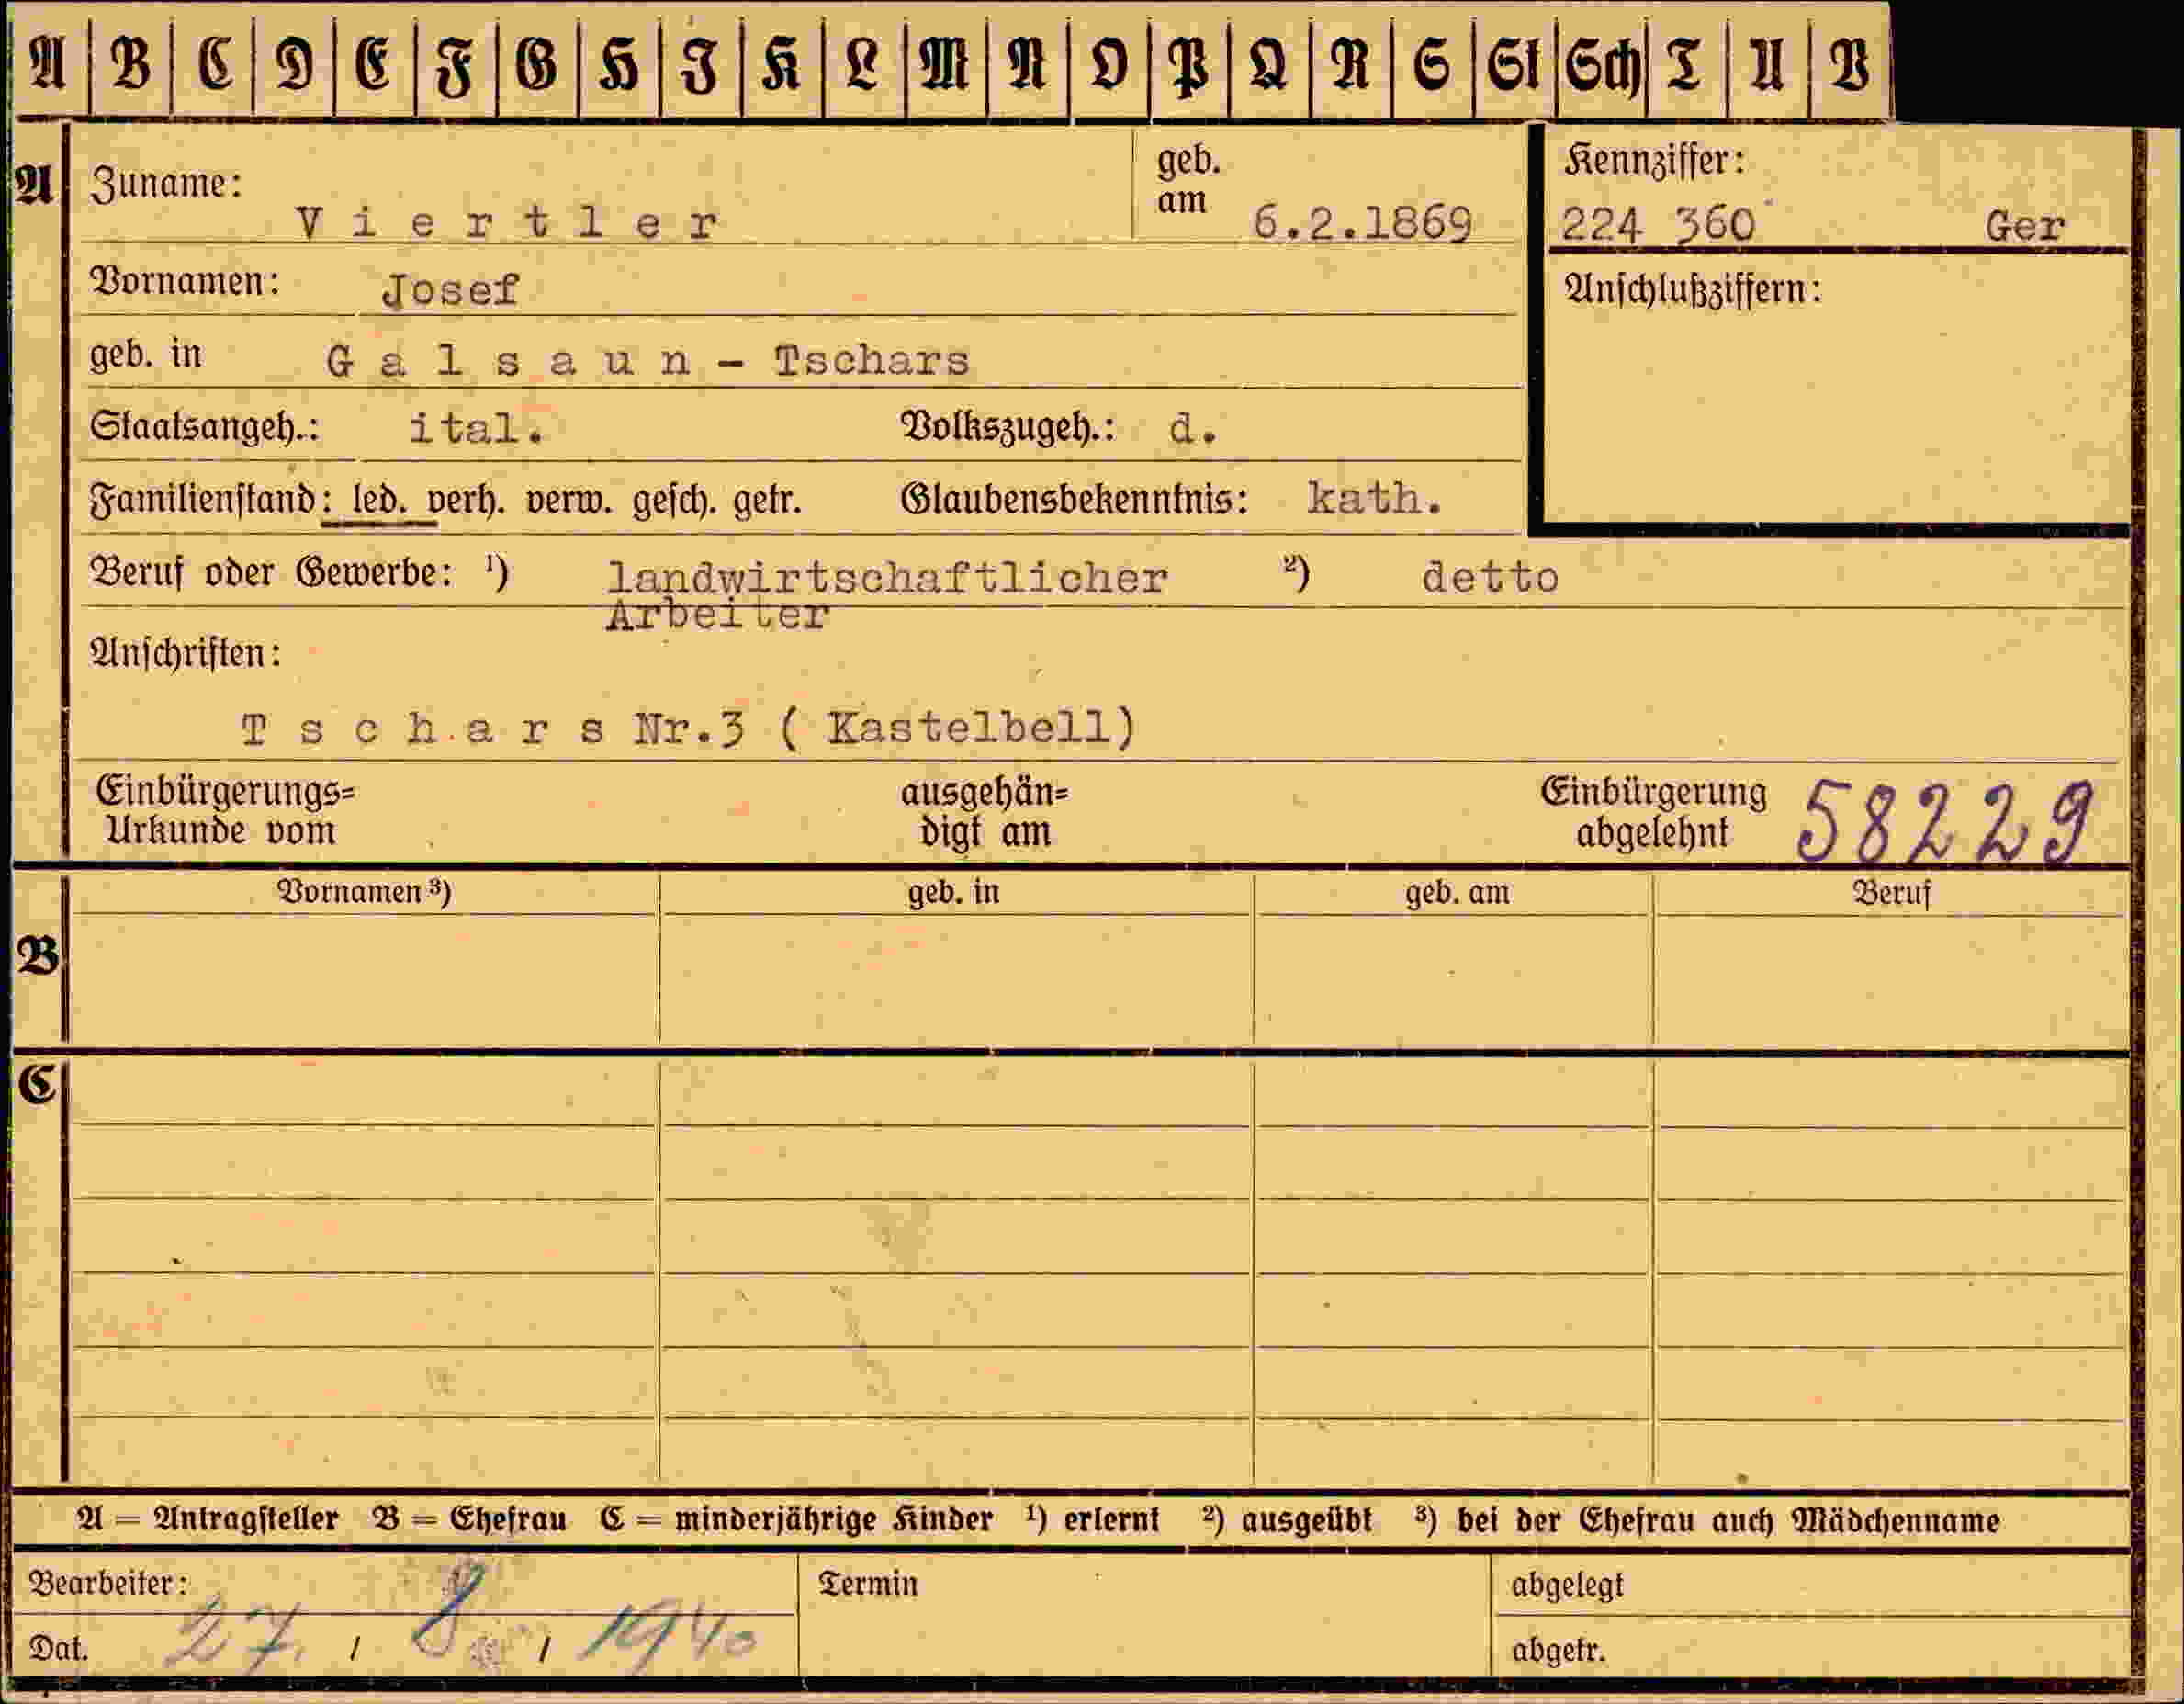 A B C D E F G H I K L M N O P Q R S St Sch T U V
A Zuname: Viertler geb. am 6.2.1869 Kennziffer: 224 360 Ger
Vornamen: Josef Anschlußziffern:
geb. in Galsaun - Tschars
Staatsangeh.: ital. Volkszugeh.: d.
Familienstand: led. verh. verw. gesch. getr. Glaubensbekenntnis: kath.
Beruf oder Gewerbe: ¹) landwirtschaftlicher ²) detto
Arbeiter
Anschriften:
Tschars Nr.3 ( Kastelbell)
Einbürgerungs= ausgehän= Einbürgerung 58229
Urkunde vom digt am abgelehnt
Vornamen ³) geb. in geb. am Beruf
B
C
A = Antragsteller B = Ehefrau C = minderjährige Kinder ¹) erlernt ²) ausgeübt ³) bei der Ehefrau auch Mädchenname
Bearbeiter: Termin abgelegt
Dat. 27. / 8. / 1940 abgetr.